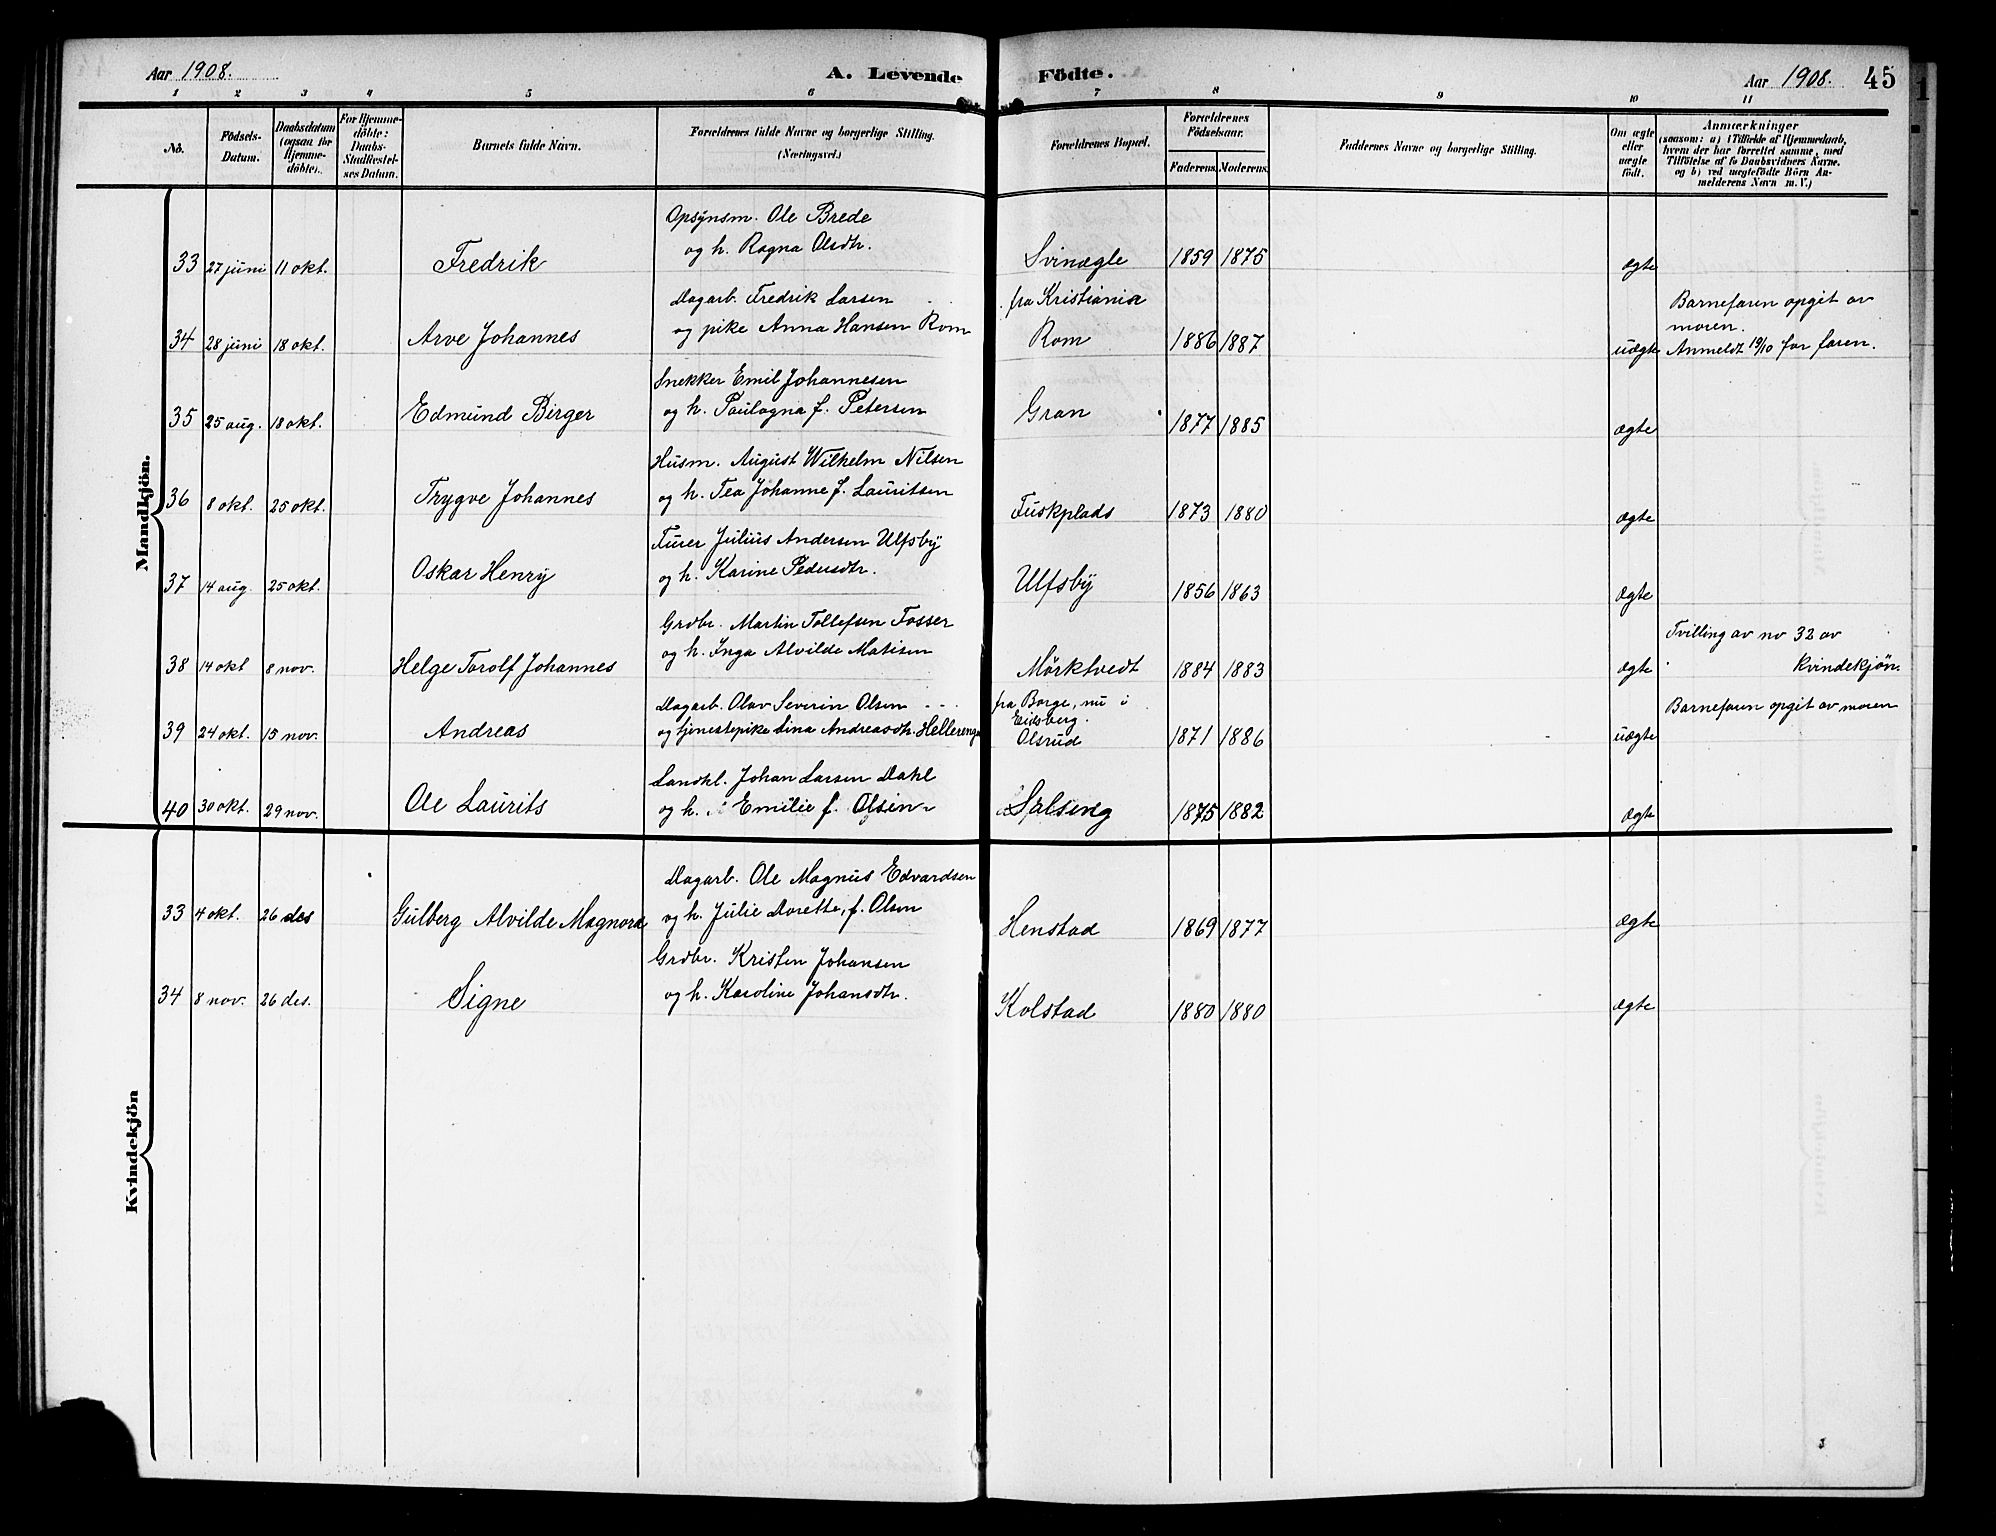 Aar 1908.
A. Levende Födte.
Aar 1908. 45
1 2 3 4 5 6 7 8 9 10 11
No.
Födsels-
Datum.
Daabsdatum
(ogsaa for
Hjemme-
döbte).
For Hjemme-
döbte:
Daabs-
Stadfæstel-
ses Datum.
Barnets fulde Navn.
Forældrenes fulde Navne og borgerlige Stilling.
(Næringsvei.)
Forældrenes Bopæl.
Forældrenes
Födselsaar.
Faderens. Moderens.
Faddernes Navne og borgerlige Stilling.
Om ægte
eller
uægte
födt.
Anmærkninger
(saasom: a) i Tilfælde af Hjemmedaab,
hvem der har forrettet samme, med
Tilföielse af to Daabsvidners Navne.
og b) ved uægtefödte Börn An-
melderens Navn m. V.)
Mandkjön.
Opsynsm. Ole Brede
og h. Ragna Olsdtr.
33 27 juni 11 okt. Fredrik Svinægle 1859 1875 ægte
Dagarb. Fredrik Larsen fra Kristiania
og pike Anna Hansen Rom
34 28 juni 18 okt. Arve Johannes Rom 1886 1887 uægte
Barnefaren opgit av
moren.
Anmeldt 19/10 for faren.
Snekker Emil Johannesen
og h. Paulagna f. Petersen
35 25 aug. 18 okt. Edmund Birger Gran 1877 1885 ægte
Husm. August Wilhelm Nilsen
og h. Tea Johanne f. Lauritsen
36 8 okt. 25 okt. Trygve Johannes Fuskplads 1873 1880 ægte
Furer Julius Andersen Ulfsby
og h. Karine Pedersdtr.
37 14 aug. 25 okt. Oskar Henry Ulfsby 1856 1863 ægte
Grdbr. Martin Tollefsen Fosser
og h. Inga Alvilde Matisen
38 14 okt 8 nov. Helge Torolf Johannes Mörktvedt 1884 1883 ægte
Tvilling av no 32 av
kvindekjön.
Dagarb. Olav Severin Olsen fra Borge, nu i
Eidsberg.
og tjenestepike Lina Andreasdtr. Hellerenga
39 24 okt. 15 nov. Andreas Olsrud 1871 1886 uægte
Barnefaren opgit av moren
Landhl. Johan Larsen Dahl
og h. Emilie f. Olsen
40 30 okt. 29 nov. Ole Laurits 1875 1882 ægte
Kvindekjön
Dagarb. Ole Magnus Edvardsen
og h. Julie Dorette, f. Olsen
33 4 okt. 26 des Gulberg Alvilde Magnora Henstad 1869 1877 ægte
Grdbr. Kristen Johansen
og h. Karoline Johansdtr.
34 8 nov. 26 des. Signe Kolstad 1880 1880 ægte